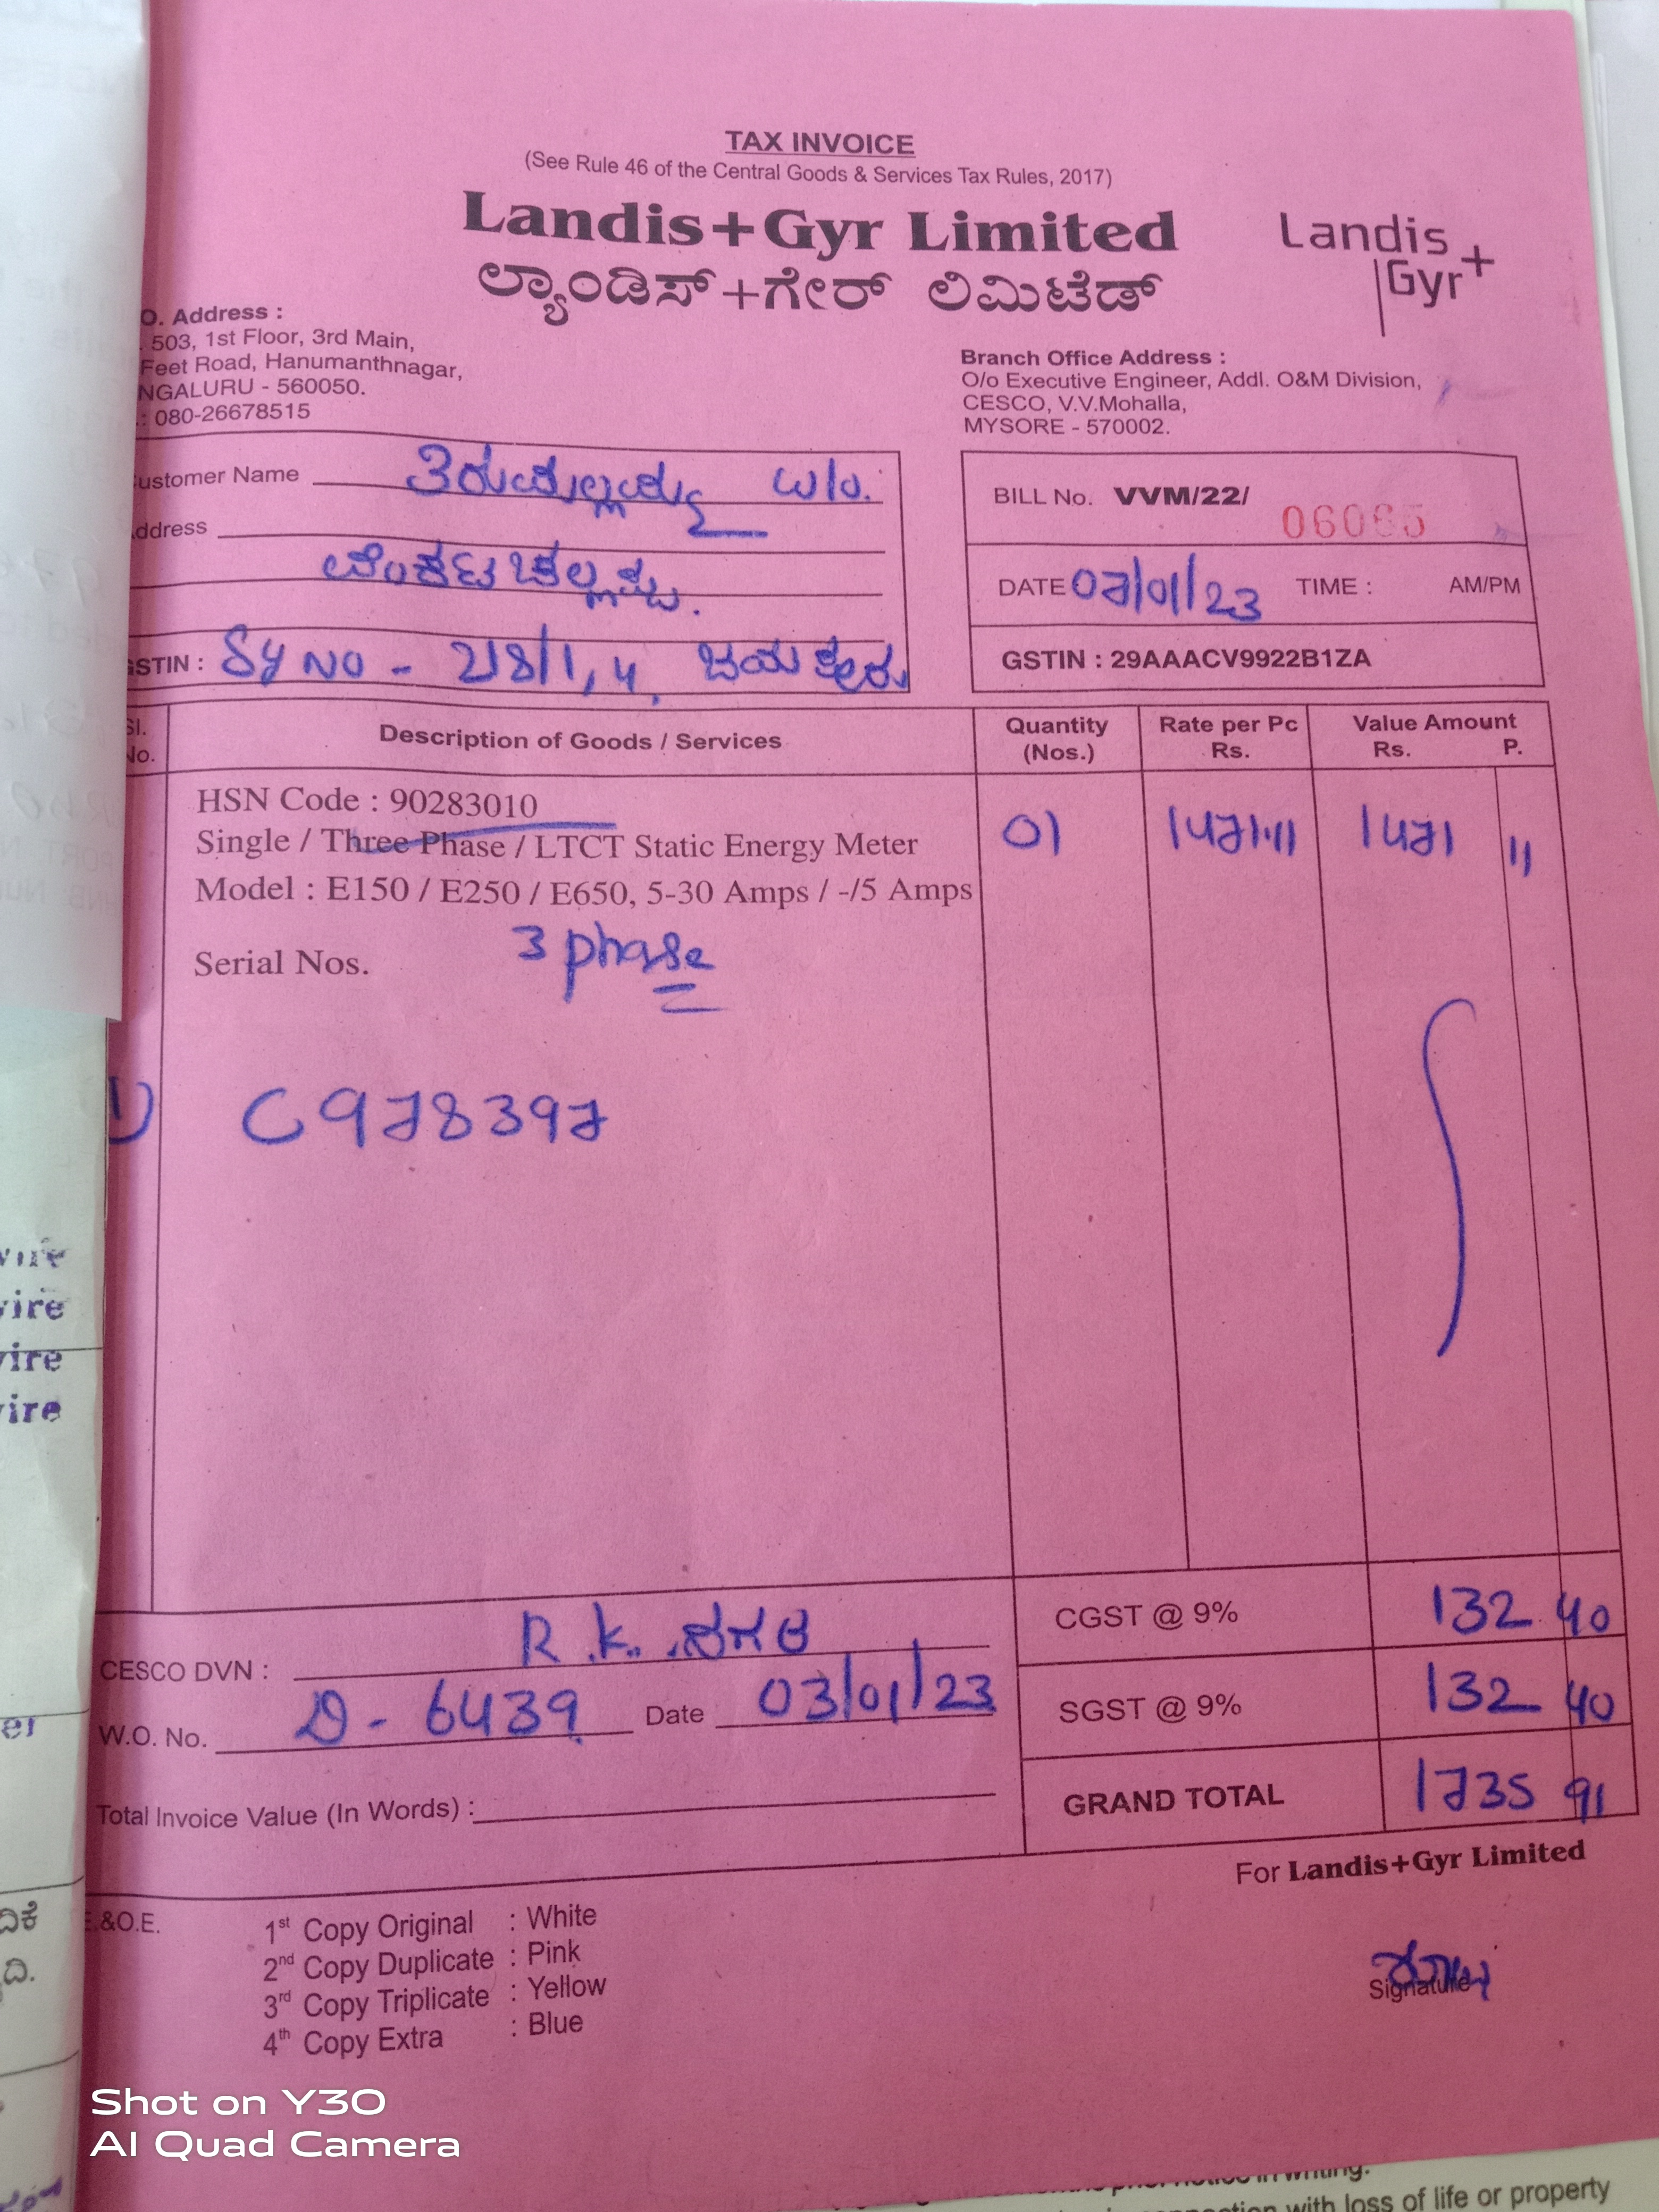 TAX INVOICE
(See Rule 46 of the Central Goods & Services Tax Rules, 2017)
Landis+Gyr Limited
ಲ್ಯಾಂಡಿಸ್+ಗೇರ್ ಲಿಮಿಟೆಡ್
Landis
Gyr+
O. Address :
503, 1st Floor, 3rd Main,
Feet Road, Hanumanthnagar,
NGALURU - 560050.
: 080-26678515
Branch Office Address :
O/o Executive Engineer, Addl. O&M Division,
CESCO, V.V.Mohalla,
MYSORE - 570002.
ustomer Name W/o.
ddress
STIN : Sy NO - 218/1, 4,
BILL No. VVM/22/ 06065
DATE 07/01/23 TIME : AM/PM
GSTIN : 29AAACV9922B1ZA
Sl. No. Description of Goods / Services Quantity (Nos.) Rate per Pc Rs. Value Amount Rs. P.
HSN Code : 90283010
Single / Three Phase / LTCT Static Energy Meter 01 1471.11 1471 11
Model : E150 / E250 / E650, 5-30 Amps / -/5 Amps
Serial Nos. 3 phase
1) C978397
CGST @ 9% 132 40
CESCO DVN : R.K. ನಗರ
SGST @ 9% 132 40
W.O. No. D - 6439 Date 03/01/23
GRAND TOTAL 1735 91
Total Invoice Value (In Words) :
For Landis+Gyr Limited
E.&O.E.
1st Copy Original : White
2nd Copy Duplicate : Pink
3rd Copy Triplicate : Yellow
4th Copy Extra : Blue
Signature
Shot on Y30
AI Quad Camera
wire
wire
wire
with loss of life or property